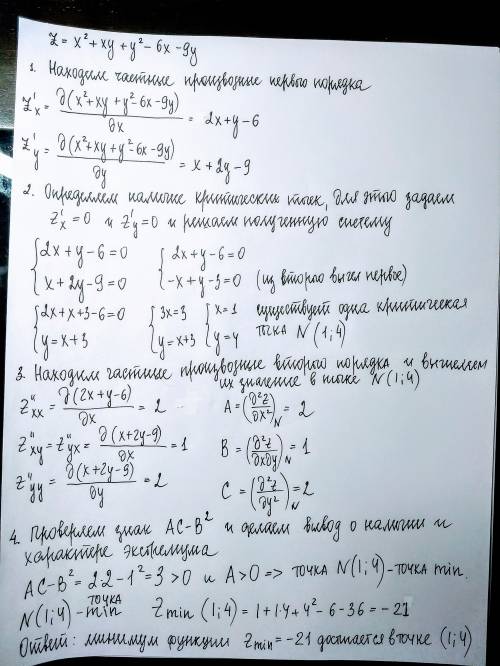 Z = x² + xy + y² - 6x - 9y
1. Находим частные производные первого порядка
Z'x = ∂(x²+xy+y²-6x-9y)/∂x = 2x+y-6
Z'y = ∂(x²+xy+y²-6x-9y)/∂y = x+2y-9
2. Определяем наличие критических точек, для этого задаем
Z'x = 0 и Z'y = 0 и решаем полученную систему
{2x+y-6=0 {2x+y-6=0
{x+2y-9=0 {-x+y-3=0 (из второго вычел первое)
{2x+x+3-6=0 {3x=3 {x=1 существует одна критическая
{y=x+3 {y=x+3 {y=4 точка N(1;4)
3. Находим частные производные второго порядка и вычисляем
их значение в точке N(1;4)
Z''xx = ∂(2x+y-6)/∂x = 2 A = (∂²z/∂x²)N = 2
Z''xy = Z''yx = ∂(x+2y-9)/∂x = 1 B = (∂²z/∂x∂y)N = 1
Z''yy = ∂(x+2y-9)/∂y = 2 C = (∂²z/∂y²)N = 2
4. Проверяем знак AC-B² и делаем вывод о наличии и
характере экстремума
AC-B² = 2·2-1² = 3 > 0 и A > 0 => точка N(1;4) - точка min.
N(1;4) - точка min Zmin (1;4) = 1+1·4+4²-6-36 = -21
Ответ: минимум функции Zmin = -21 достигается в точке (1;4)